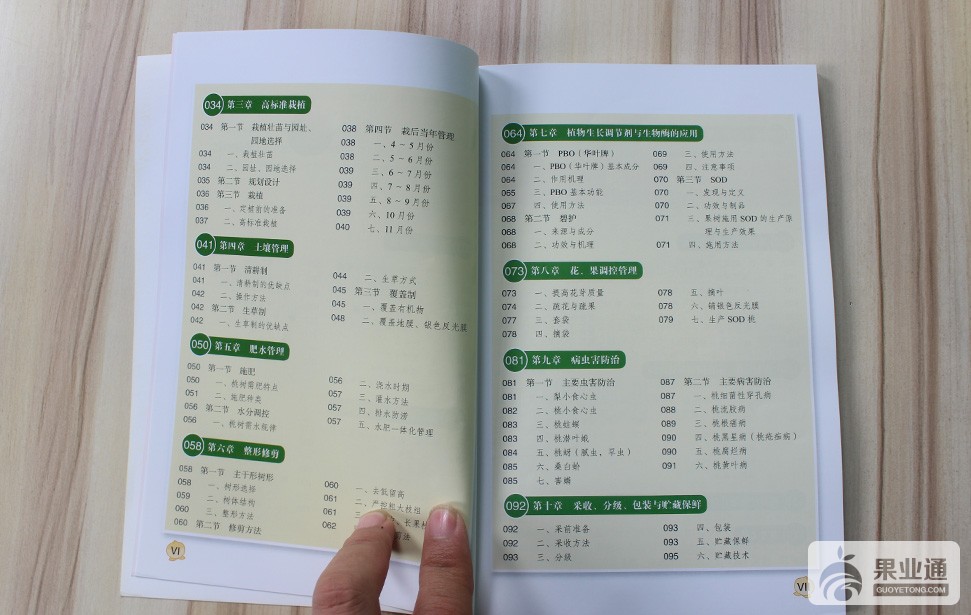 034 第三章 高标准栽植
034 第一节 栽植壮苗与园址、
园地选择
034 一、栽植壮苗
034 二、园址、园地选择
035 第二节 规划设计
036 第三节 栽植
036 一、定植前的准备
037 二、高标准栽植
038 第四节 栽后当年管理
038 一、4~5月份
038 二、5~6月份
039 三、6~7月份
039 四、7~8月份
039 五、8~9月份
039 六、10月份
040 七、11月份
041 第四章 土壤管理
041 第一节 清耕制
041 一、清耕制的优缺点
042 二、操作方法
042 第二节 生草制
042 一、生草制的优缺点
044 二、生草方式
045 第三节 覆盖制
045 一、覆盖有机物
048 二、覆盖地膜、银色反光膜
050 第五章 肥水管理
050 第一节 施肥
050 一、桃树需肥特点
051 二、施肥种类
056 第二节 水分调控
056 一、桃树需水规律
056 二、浇水时期
057 三、灌水方法
057 四、排水防涝
057 五、水肥一体化管理
058 第六章 整形修剪
058 第一节 主干形树形
058 一、树形选择
059 二、树体结构
060 三、整形方法
060 第二节 修剪方法
060 一、去低留高
061 二、严控粗大枝组
061 三、
长果枝
062
VI
064 第七章 植物生长调节剂与生物酶的应用
064 第一节 PBO（华叶牌）
064 一、PBO（华叶牌）基本成分
064 二、作用机理
065 三、PBO基本功能
067 四、使用方法
068 第二节 碧护
068 一、来源与成分
068 二、功效与机理
069 三、使用方法
069 四、注意事项
070 第三节 SOD
070 一、发现与定义
070 二、功效与制品
071 三、果树施用SOD的生产原
理与生产效果
071 四、施用方法
073 第八章 花、果调控管理
073 一、提高花芽质量
074 二、疏花与疏果
077 三、套袋
078 四、摘袋
078 五、摘叶
078 六、铺银色反光膜
079 七、生产SOD桃
081 第九章 病虫害防治
081 第一节 主要虫害防治
081 一、梨小食心虫
082 二、桃小食心虫
083 三、桃蛀螟
083 四、桃潜叶蛾
084 五、桃蚜（腻虫，旱虫）
085 六、桑白蚧
085 七、害螨
087 第二节 主要病害防治
087 一、桃细菌性穿孔病
088 二、桃流胶病
089 三、桃根癌病
090 四、桃黑星病（桃疮痂病）
090 五、桃腐烂病
091 六、桃黄叶病
092 第十章 采收、分级、包装与贮藏保鲜
092 一、采前准备
092 二、采收方法
093 三、分级
093 四、包装
093 五、贮藏保鲜
095 六、贮藏技术
果业通
GUOYETONG.COM